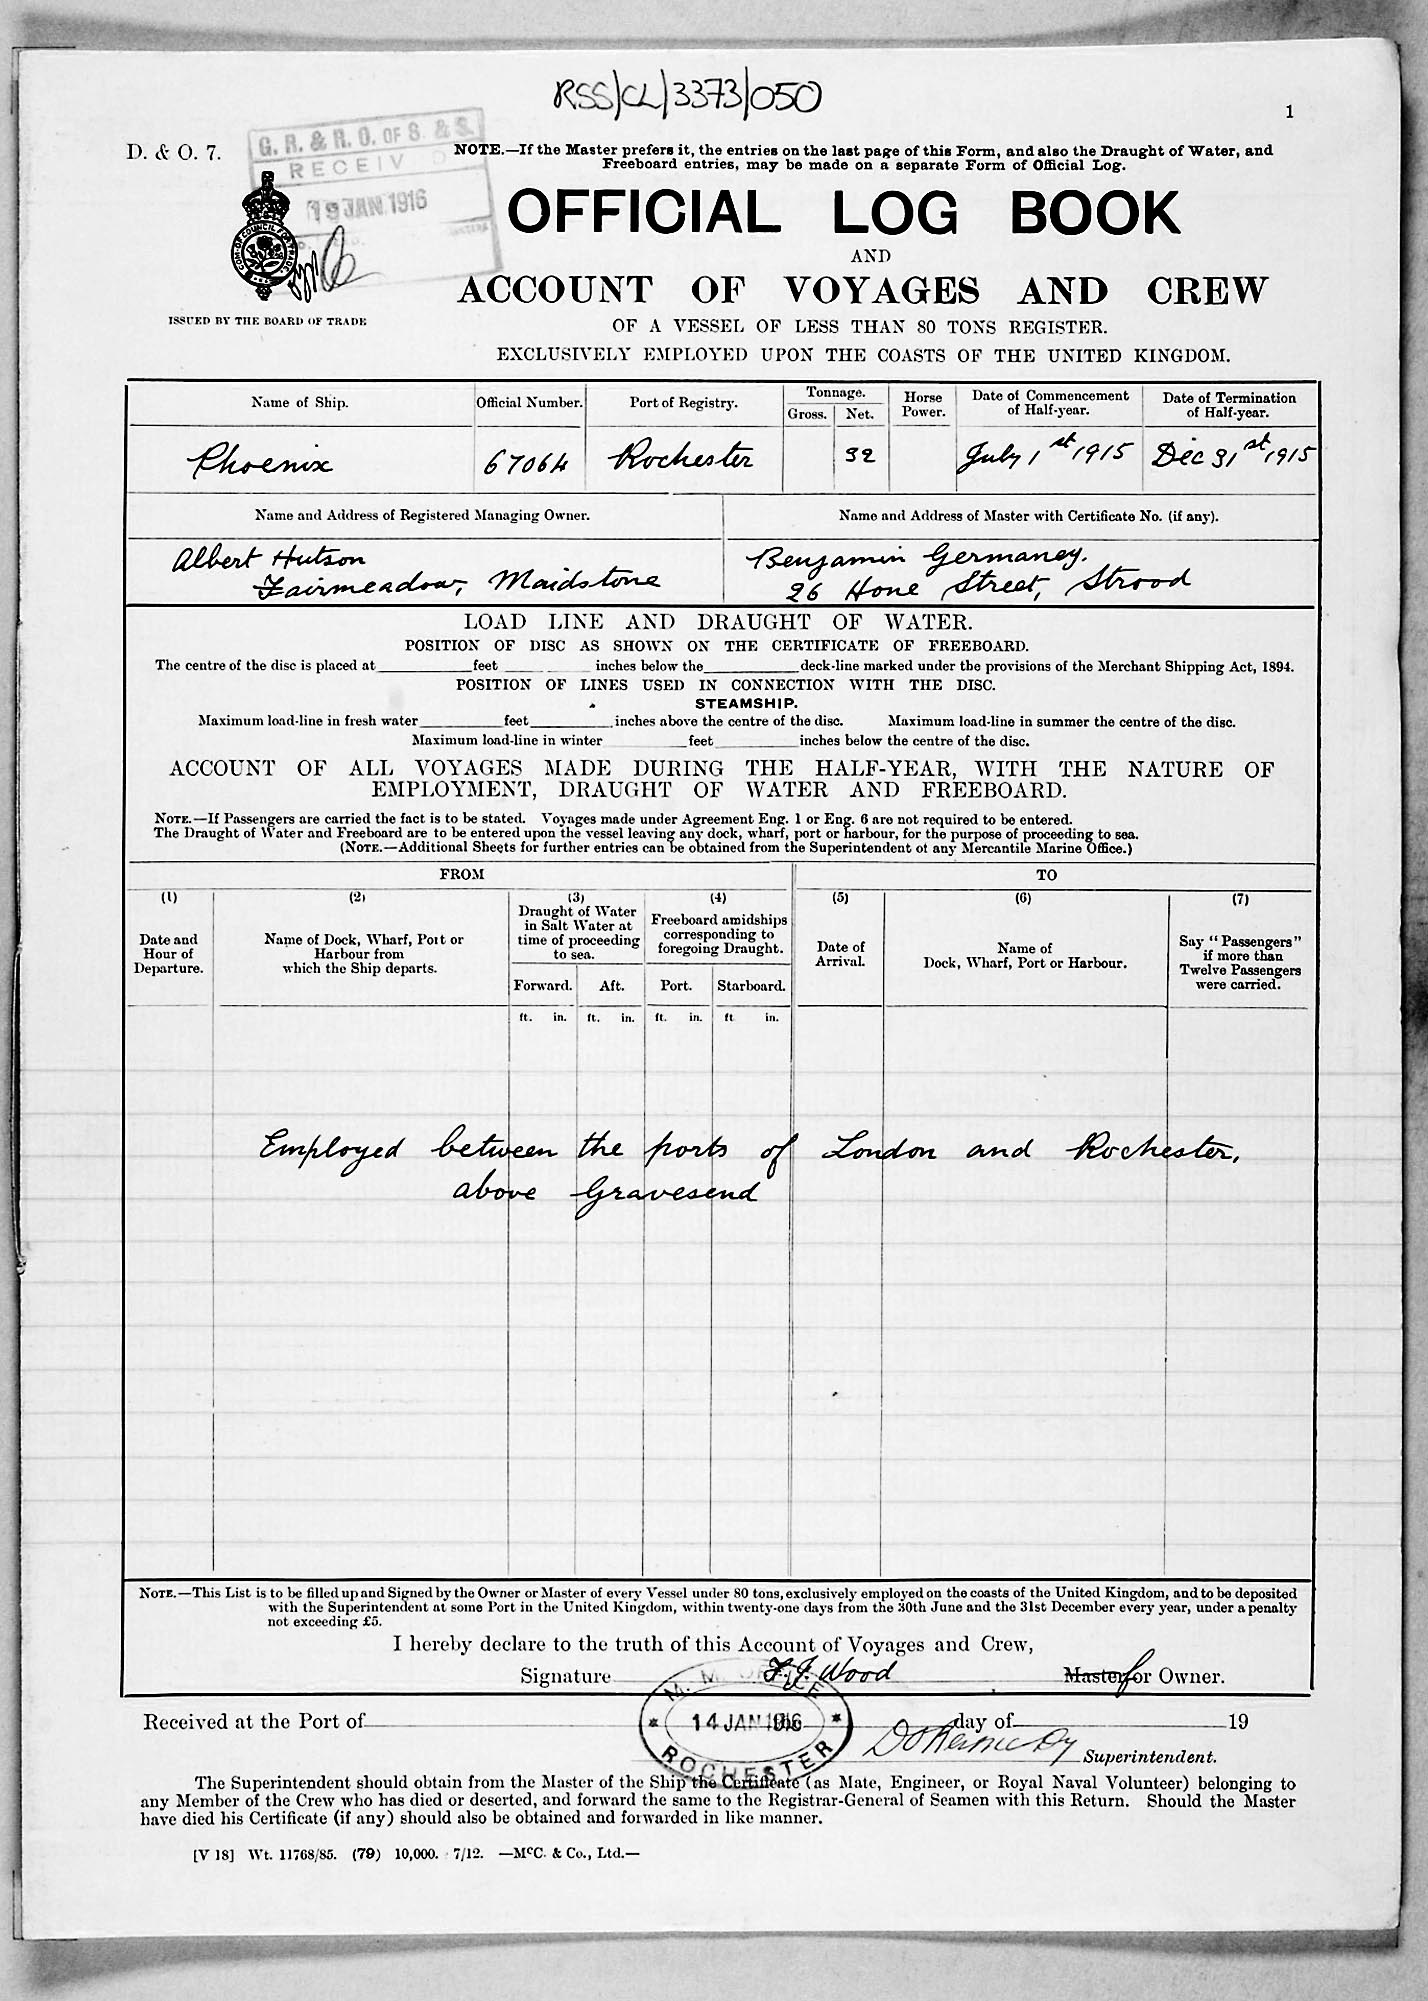 RSS/CL/3373/050
1
D. & O. 7.
G. R. & R. O. OF S. & S.
RECEIV D
19 JAN. 1916
NOTE.—If the Master prefers it, the entries on the last page of this Form, and also the Draught of Water, and
Freeboard entries, may be made on a separate Form of Official Log.
OFFICIAL LOG BOOK
AND
ACCOUNT OF VOYAGES AND CREW
ISSUED BY THE BOARD OF TRADE
OF A VESSEL OF LESS THAN 80 TONS REGISTER.
EXCLUSIVELY EMPLOYED UPON THE COASTS OF THE UNITED KINGDOM.
Name of Ship. Official Number. Port of Registry. Tonnage. Gross. Net. Horse Power. Date of Commencement of Half-year. Date of Termination of Half-year.
Phoenix 67064 Rochester 32 July 1st 1915 Dec 31st 1915
Name and Address of Registered Managing Owner. Name and Address of Master with Certificate No. (if any).
Albert Hutson Benjamin Germaney.
Fairmeadow, Maidstone 26 Hone Street, Strood
LOAD LINE AND DRAUGHT OF WATER.
POSITION OF DISC AS SHOWN ON THE CERTIFICATE OF FREEBOARD.
The centre of the disc is placed at feet inches below the deck-line marked under the provisions of the Merchant Shipping Act, 1894.
POSITION OF LINES USED IN CONNECTION WITH THE DISC.
STEAMSHIP.
Maximum load-line in fresh water feet inches above the centre of the disc. Maximum load-line in summer the centre of the disc.
Maximum load-line in winter feet inches below the centre of the disc.
ACCOUNT OF ALL VOYAGES MADE DURING THE HALF-YEAR, WITH THE NATURE OF
EMPLOYMENT, DRAUGHT OF WATER AND FREEBOARD.
NOTE.—If Passengers are carried the fact is to be stated. Voyages made under Agreement Eng. 1 or Eng. 6 are not required to be entered.
The Draught of Water and Freeboard are to be entered upon the vessel leaving any dock, wharf, port or harbour, for the purpose of proceeding to sea.
(NOTE.—Additional Sheets for further entries can be obtained from the Superintendent of any Mercantile Marine Office.)
FROM TO
(1) (2) (3) (4) (5) (6) (7)
Date and Hour of Departure.
Name of Dock, Wharf, Port or Harbour from which the Ship departs.
Draught of Water in Salt Water at time of proceeding to sea.
Freeboard amidships corresponding to foregoing Draught.
Date of Arrival.
Name of Dock, Wharf, Port or Harbour.
Say "Passengers" if more than Twelve Passengers were carried.
Forward. Aft. Port. Starboard.
ft. in. ft. in. ft. in. ft in.
Employed between the ports of London and Rochester,
above Gravesend
NOTE.—This List is to be filled up and Signed by the Owner or Master of every Vessel under 80 tons, exclusively employed on the coasts of the United Kingdom, and to be deposited
with the Superintendent at some Port in the United Kingdom, within twenty-one days from the 30th June and the 31st December every year, under a penalty
not exceeding £5.
I hereby declare to the truth of this Account of Voyages and Crew,
Signature F. J. Wood Master for Owner.
M. M. OFFICE
14 JAN 1916
ROCHESTER
Received at the Port of day of 19
Superintendent.
The Superintendent should obtain from the Master of the Ship the Certificate (as Mate, Engineer, or Royal Naval Volunteer) belonging to
any Member of the Crew who has died or deserted, and forward the same to the Registrar-General of Seamen with this Return. Should the Master
have died his Certificate (if any) should also be obtained and forwarded in like manner.
[V 18] Wt. 11768/85. (79) 10,000. 7/12. —McC. & Co., Ltd.—